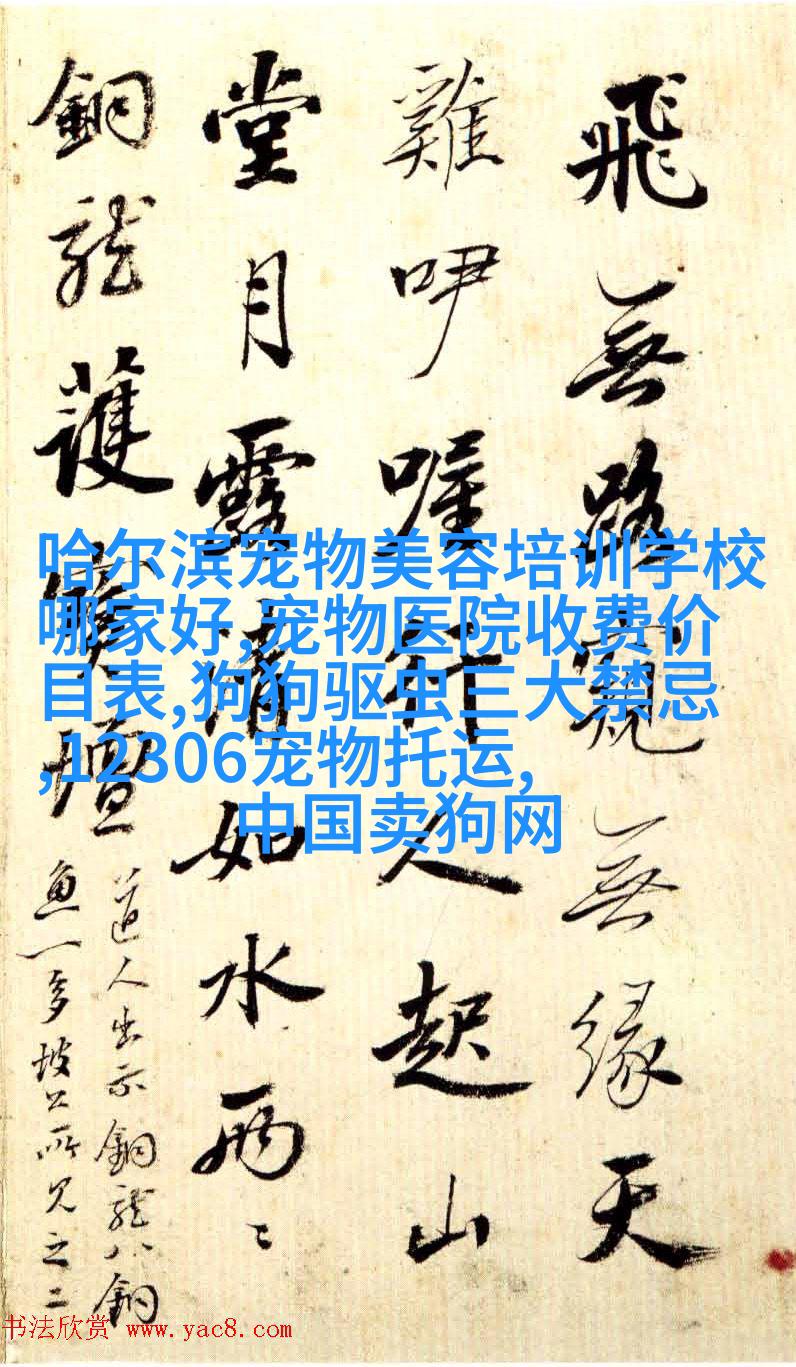 飛無路無緣天
雞咿喔人起山
堂月露清如水兩〻
銅龍護壇
道人出示銅龍八銅
魚一坡公所見之二
哈尔滨宠物美容培训学校
哪家好,宠物医院收费价
目表,狗狗驱虫三大禁忌
,12306宠物托运,
中国卖狗网
书法欣赏 www.yac8.com